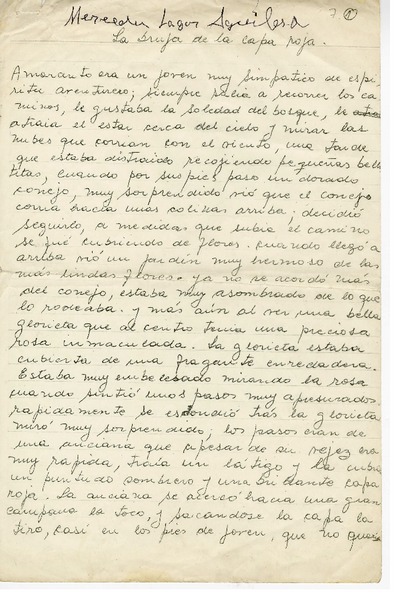 Mercedes Lagos Aguilera
7 1
La bruja de la capa roja.
Amaranto era un joven muy simpatico de espi
ritu aventurero; siempre salia a recorrer los ca
minos, le gustaba la soledad del bosque, le
atraia el estar cerca del cielo y mirar las
nubes que corrian con el viento, una tarde
que estaba distraido recojiendo pequeñas bello
titas, cuando por sus pies paso un dorado
conejo, muy sorprendido vió que el conejo
corria hacia unas colinas arriba; decidió
seguirlo, a medidas que subia el camino
se fué cubriendo de flores. cuando llegó a
arriba vió un jardin muy hermoso de las
más lindas flores. ya no se acordó más
del conejo, estaba muy asombrado de lo que
lo rodeaba. y más aún al ver una bella
glorieta que al centro tenia una preciosa
rosa inmaculada. La glorieta estaba
cubierta de una fragante enredadera.
Estaba muy embelesado mirando la rosa
cuando sintió unos pasos muy apresurados
rapidamente se escondió tras la glorieta
miró muy sorprendido; los pasos eran de
una anciana que apesar de su vejez era
muy rapida, traia un látigo y la cubria
un puntudo sombrero y una brillante capa
roja. La anciana se acercó hacia una gran
campana la toco, y sacandose la capa la
tiro, casi en los pies de joven, que no queria